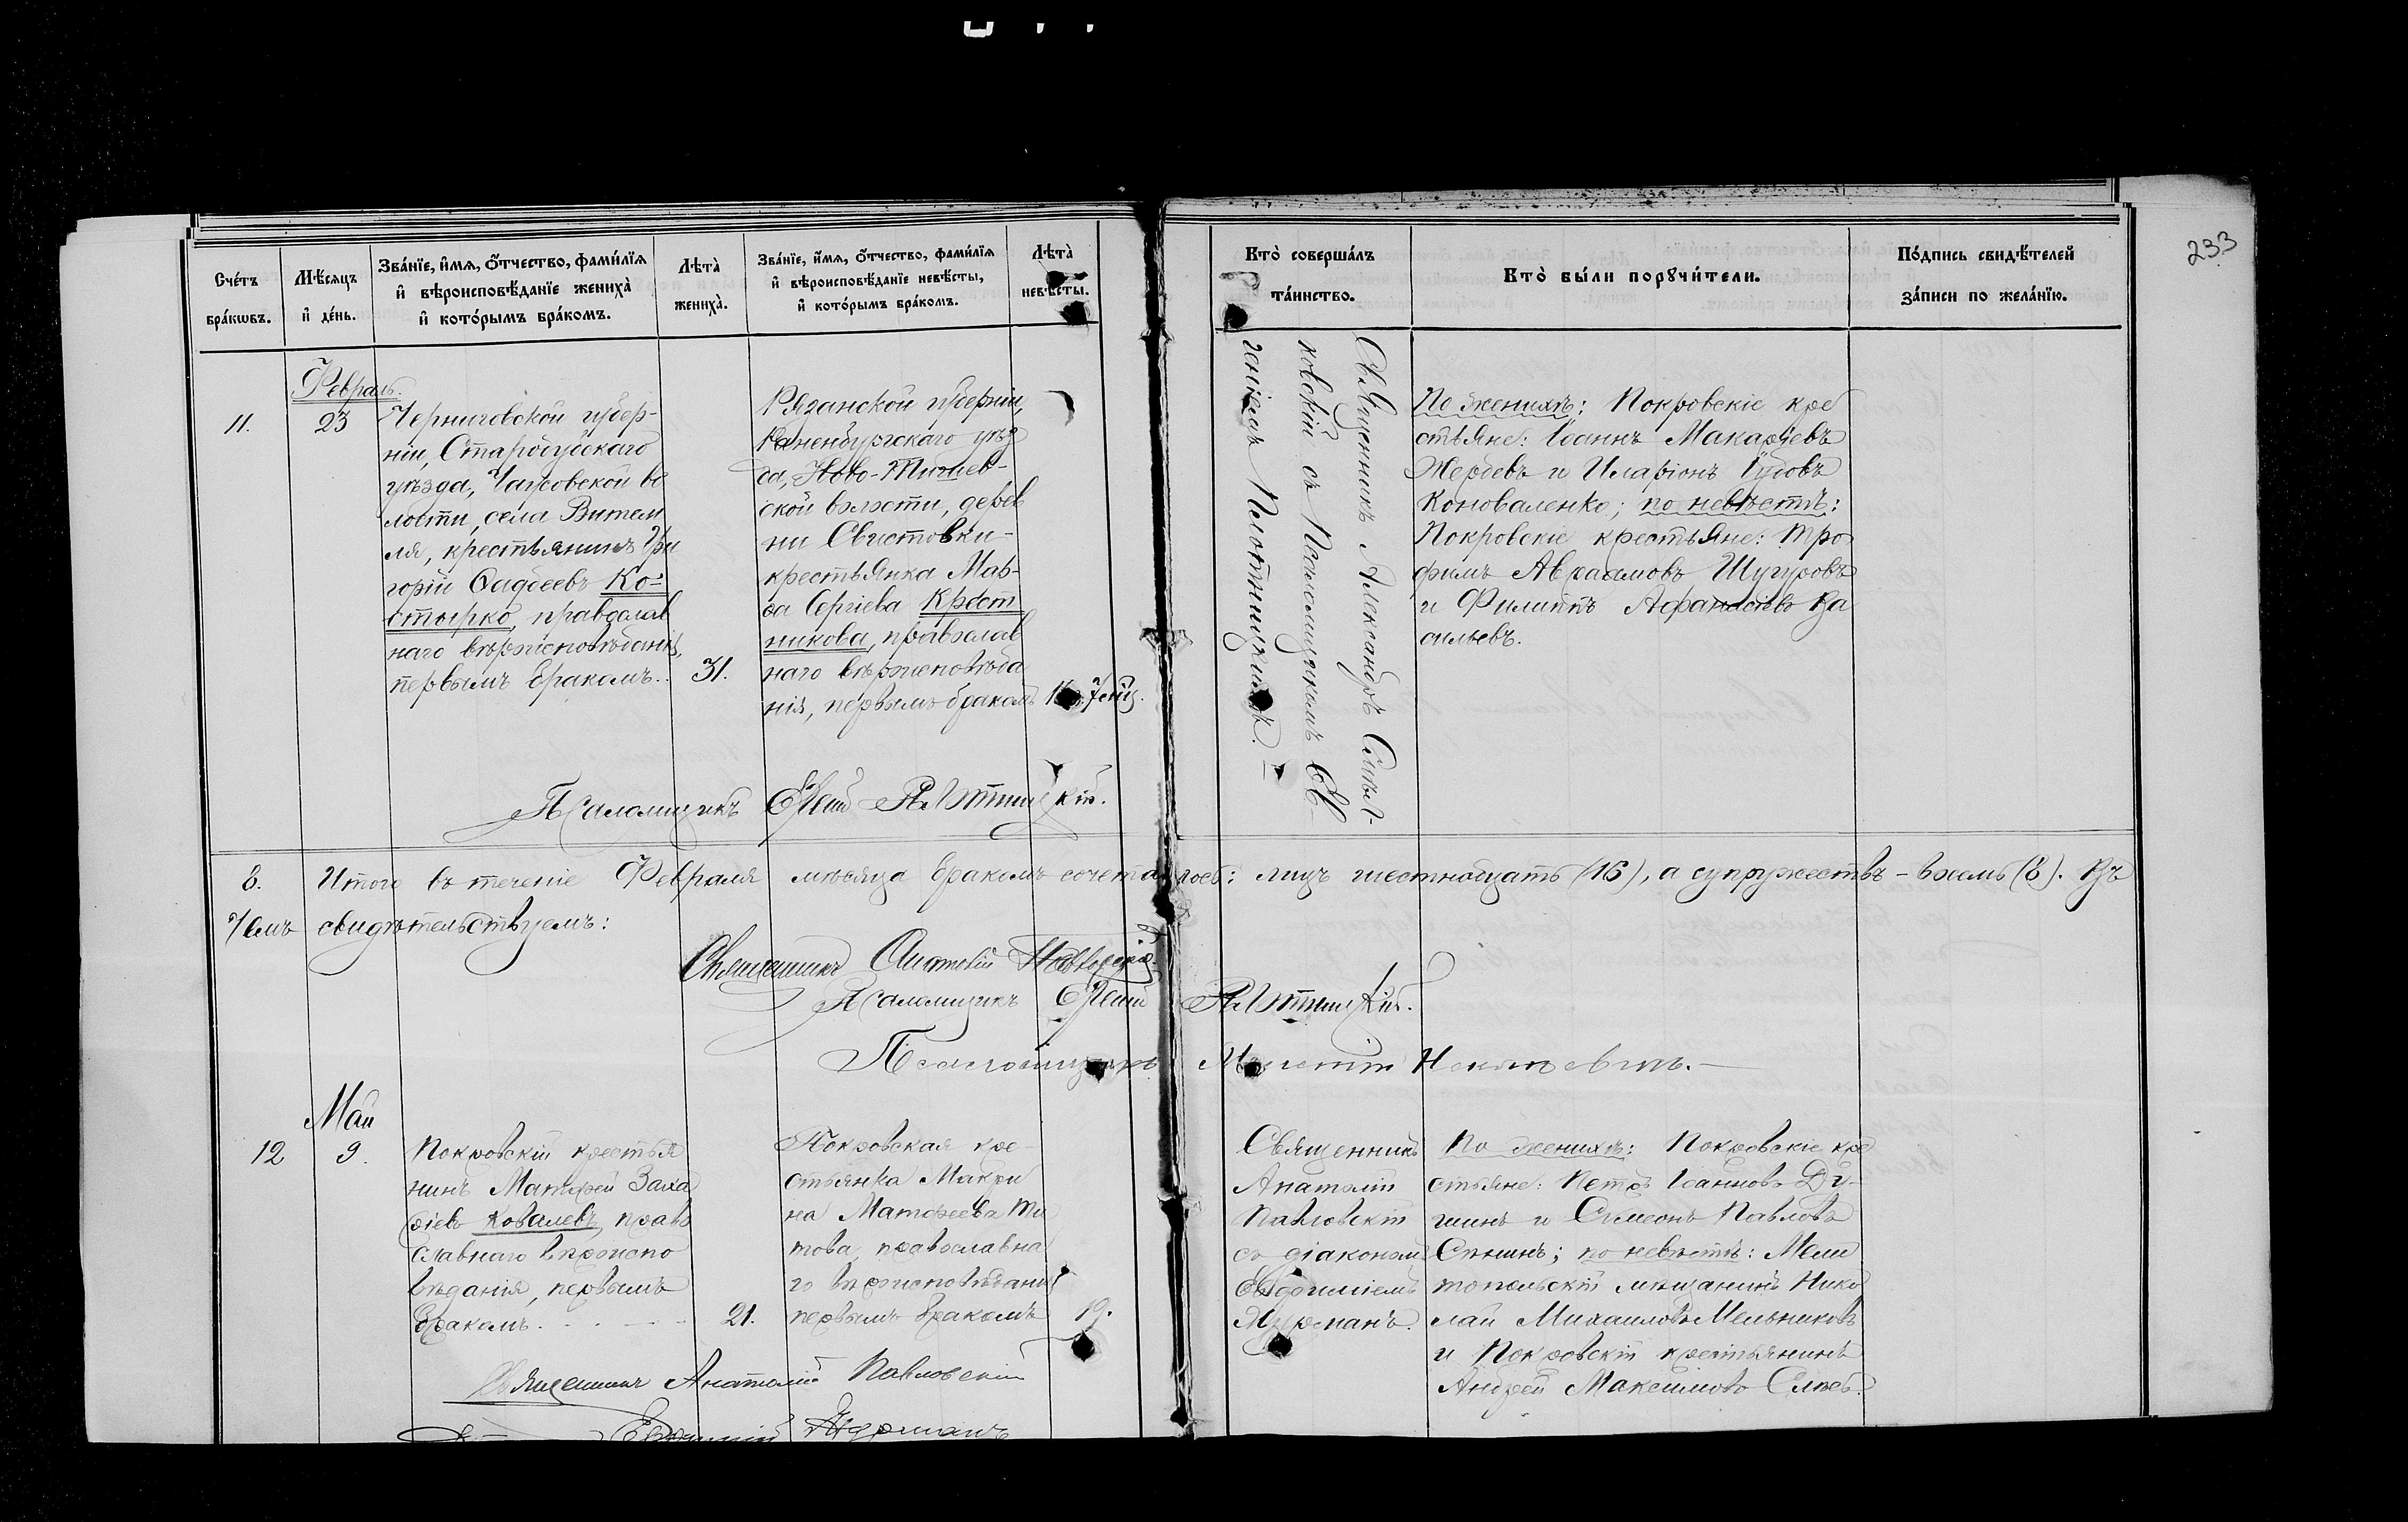 233
Счетъ бракωвъ.
Мѣсяцъ и день.
Званїе, имя, отчество, фамилїя и вѣроисповѣданїе жениха и которымъ бракомъ.
Лѣта жениха.
Званїе, имя, отчество, фамилїя и вѣроисповѣданїе невѣсты, и которымъ бракомъ.
Лѣта невѣсты.
Кто совершалъ таинство.
Кто были порꙋчители.
Подпись свидѣтелей записи по желанїю.
Февраль.
11.
23
Черниговской губер-
ніи, Стародубскаго
уѣзда, Чаусовской во
лости, села Витем
ля, крестьянинъ Гри
горій Ѳаддеевъ Ко-
стырко, православ
наго вѣроисповѣданія,
первымъ бракомъ.
31.
Рязанской губерніи,
Раненбургскаго уѣз
да, Ново-Тишев-
ской волости, дерев
ни Свистовки-
крестьянка Мав-
ра Сергіева Крест
никова, православ
наго вѣроисповѣда
нія, первымъ бракомъ
Священникъ Александръ Синь-
ковскій съ Псаломщикомъ Ев-
геніемъ Плотницкимъ.
По женихѣ: Покровскіе кре
стьяне: Іоаннъ Макаріевъ
Жербевъ и Иларіонъ Іудовъ
Коноваленко; по невѣстѣ:
Покровскіе крестьяне: Тро
фимъ Авраамовъ Шугуровъ
и Филиппъ Афанасіевъ Ва
сильевъ.
Псаломщикъ Евгеній Плотницкій.
8. Итого въ теченіе Февраля мѣсяца бракомъ сочеталось: лицъ шестнадцать (16), а супружествъ - восемь (8). Въ
чемъ свидѣтельствуемъ:
Священникъ Анатолій Павловскій.
Псаломщикъ Евгеній Плотницкій.
Псаломщикъ
Май
12
9.
Покровскій крестья
нинъ Матфей Заха
ріевъ Ковалевъ, право
славнаго вѣроиспо
вѣданія, первымъ
бракомъ.
21.
Покровская кре-
стьянка Макри
на Матфеева Ти
това, православна
го вѣроисповѣданія
первымъ бракомъ
19.
Священникъ
Анатолій
Павловскій
съ діакономъ
Евфиміемъ
Дурманъ.
По женихѣ: Покровскіе кре
стьяне: Петръ Іоанновъ Ду-
шинъ и Симеонъ Павловъ
Сѣнинъ; по невѣстѣ: Мели
топольскій мѣщанинъ Нико
лай Михаиловъ Мельниковъ
и Покровскій крестьянинъ
Андрей Максимовъ
Священникъ Анатолій Павловскій
Евфимій Дурманъ